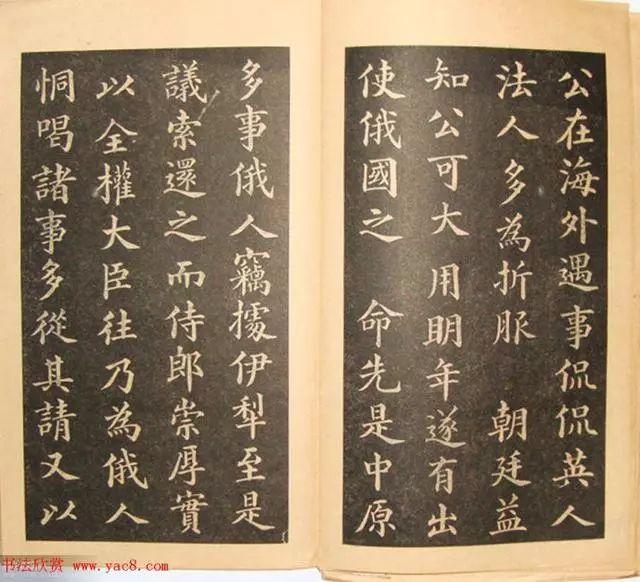 公在海外遇事侃侃英人
法人多為折服 朝廷益
知公可大用明年遂有出
使俄國之 命先是中原
多事俄人竊據伊犁至是
議索還之而侍郎崇厚實
以全權大臣往乃為俄人
恫喝諸事多從其請又以
书法欣赏 www.yac8.com